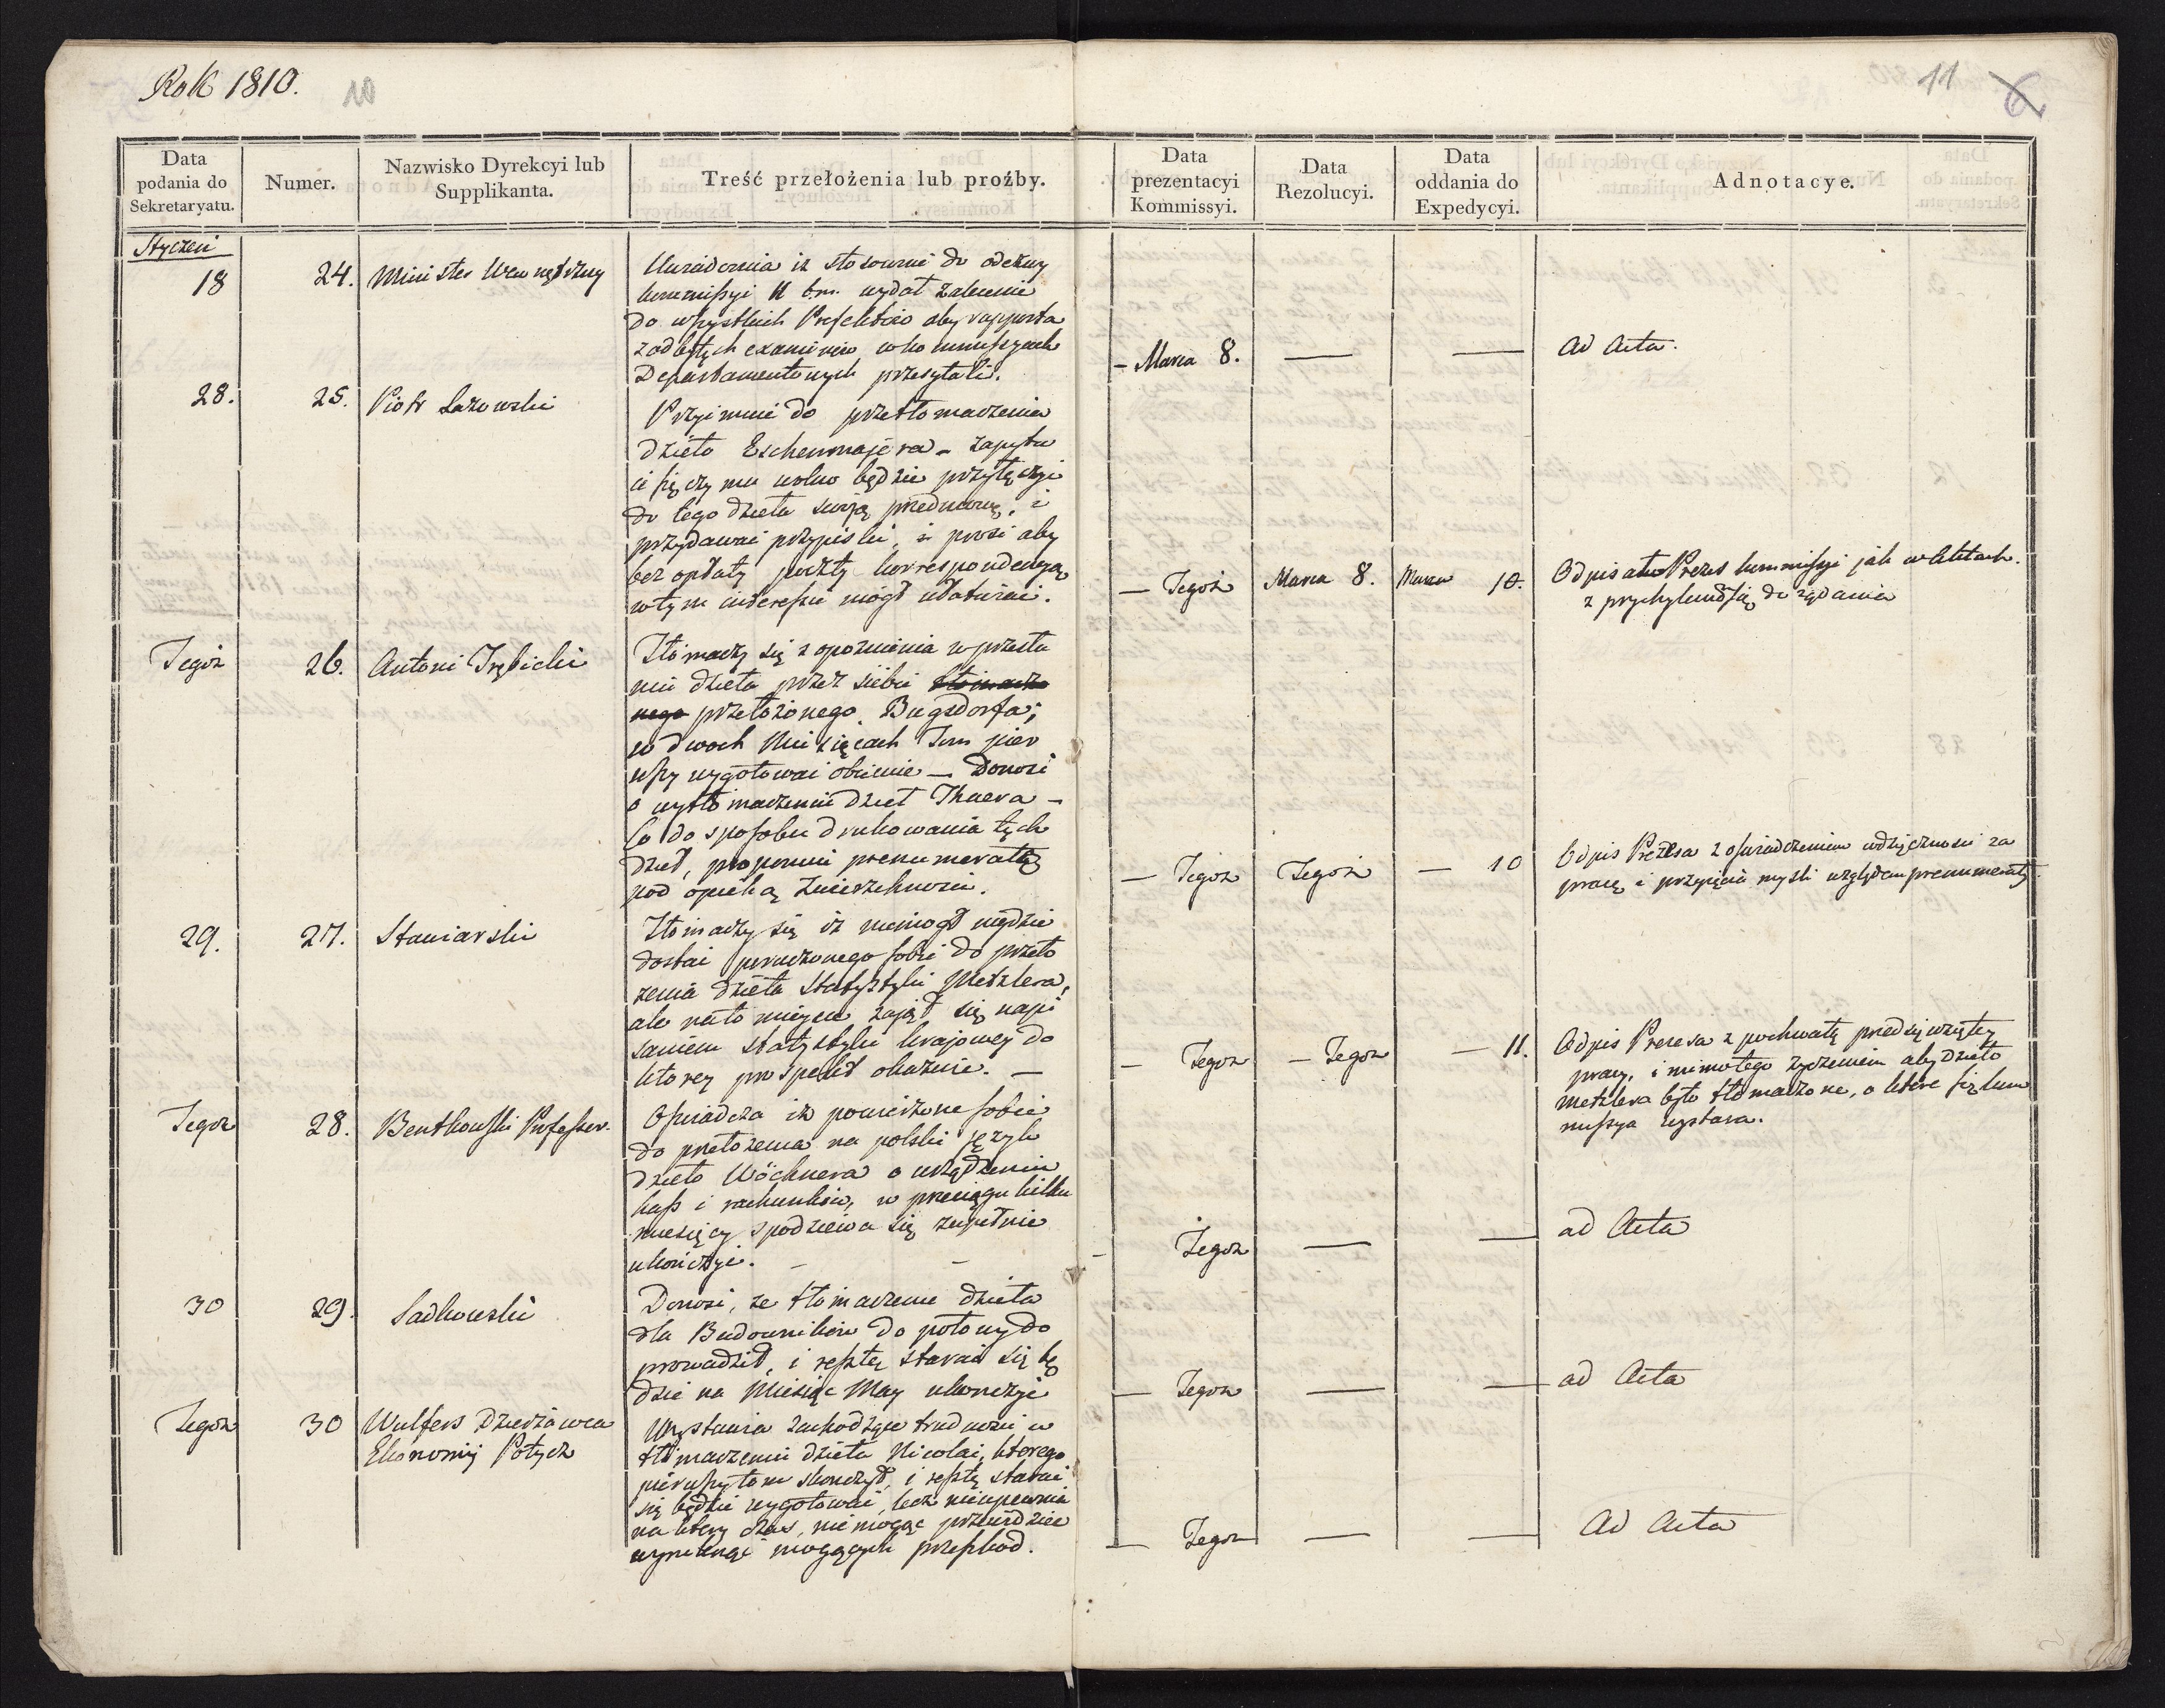 Rok 1810.
10
11
6
Data podania do Sekretaryatu.
Numer.
Nazwisko Dyrekcyi lub Supplikanta.
Treść przełożenia lub proźby.
Data prezentacyi Kommissyi.
Data Rezolucyi.
Data oddania do Expedycyi.
Adnotacye.
Styczeń
18
24. Minister Wewnętrzny
Uwiadomia iż stosownie do odezwy
kommissyi 11 b.m. wydał zalecenie
do wszystkich Prefektów aby rapporta
z odbytych examinów w kommissyach
Departamentowych przesyłali.
– Marca 8. — — Ad Acta.
28.
25. Piotr Łazowski
Przyimuie do przetłomaczenia
dzieło Eschenmajera – zapytu
ie się czy mu wolno będzie przyłączyć
do tego dzieła swoją przedmowę, i
przydawać przypiski, i prosi aby
bez opłaty poczty korrespondencyą
w tym interessie mógł ułatwiać.
— Tegoż
Marca 8.
Marca 10.
Odpis Prezes kommissyi jak w Aktach.
z przychyleniem się do żądania
Tegoż
26. Antoni Trębicki
Tłomaczy się z opoznienia w przesła
niu dzieła przez siebie tłomaczo
nego przełożonego Bugsdorfa;
w dwoch Miesięcach Tom pier
wszy wygotować obiecuie — Donosi
o wytłomaczeniu dzieł Thaera –
Co do sposobu drukowania tych
dzieł, proponuie prenumeratę
pod opieką Zwierzchności.
— Tegoż
Tegoż
— 10
Odpis Prezesa z oświadczeniem wdzięczności za
pracę i przyięcia myśli względem prenumeraty.
29.
27. Staniarski
Tłomaczy się iż niemógł nigdzie
dostać poruczonego sobie do przeło
żenia dzieła Statystyki Metzlera,
ale na to mieysce zajął się napi
saniem statystyki kraiowey do
ktorey prospekt okazuie. —
— Tegoż
– Tegoż
— 11.
Odpis Prezesa z pochwałą przedsięwziętey
pracy, i mimo tego życzeniem aby dzieło
Metzlera było tłomaczone, o ktore się kom
missya wystara.
Tegoż
28. Bentkowski Professor.
Oświadcza iż powierzone sobie
do przełożenia na polski język
dzieło Wöchnera o urządzeniu
kass i rachunków, w przeciągu kilku
miesięcy spodziewa się zupełnie
ukończyć. – –
– Tegoż — — ad Acta
30
29. Sadkowski
Donosi, że tłomaczenie dzieła
dla Budowników do połowy do
prowadził, i resztę starać się bę
dzie na Miesiąc May ukończyć
— Tegoż — — ad Acta
Tegoż
30 Wulfers Dzierżawca
Ekonomij Potycz
Wystawia zachodzące trudności w
tłomaczeniu dzieła Nicolai, ktorego
pierwszy tom skonczył, i resztę starać
się będzie wygotować, lecz nieupewnia
na ktory czas, nie mogąc przewidzieć
wyniknąć mogących przeszkod.
— Tegoż — — Ad Acta